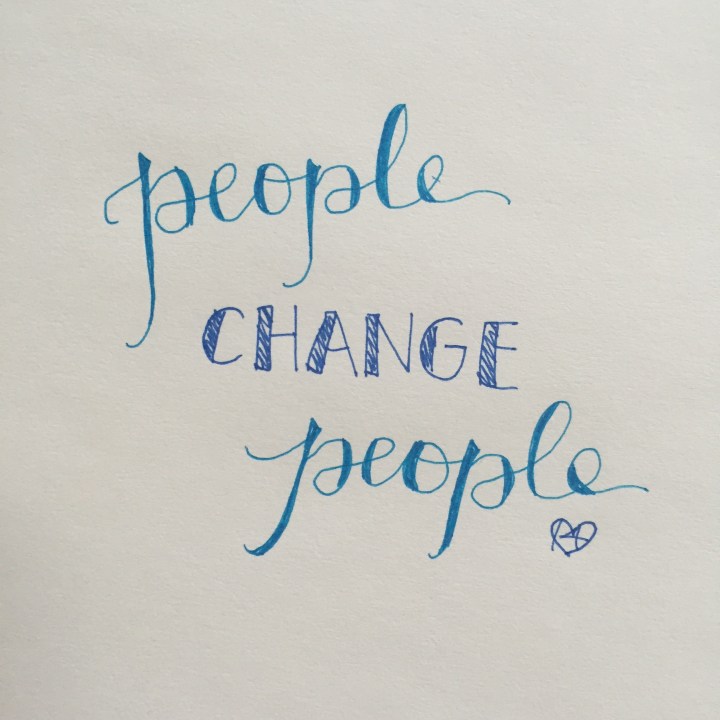 people
CHANGE
people